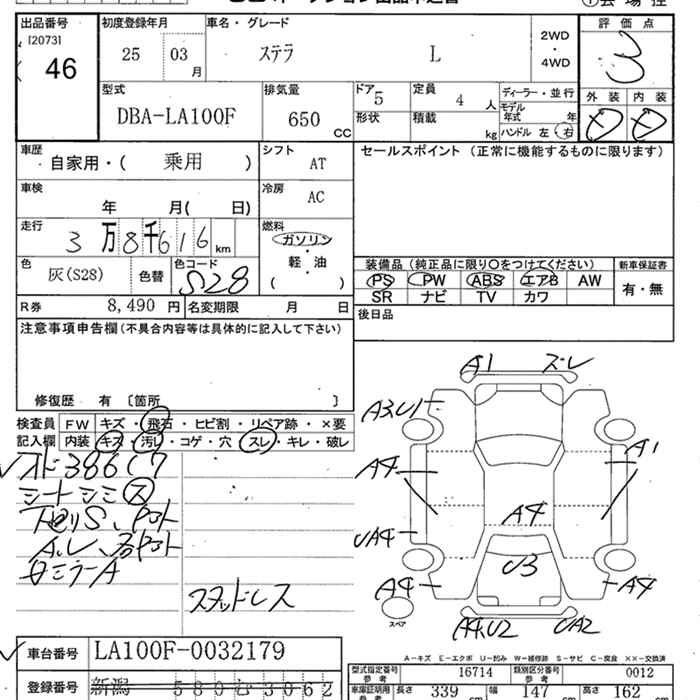 出品番号 初度登録年月 車名・グレード 評価点
[2073]
46 25 03 月 ステラ L 2WD・4WD 3
型式 排気量 ドア 定員 ディーラー・並行 外装 内装
DBA-LA100F 650 CC 5 4 人 モデル年式 年 D D
形状 積載 kg ハンドル 左 右
車歴 自家用・( 乗用 ) シフト AT セールスポイント (正常に機能するものに限ります)
車検 年 月( 日) 冷房 AC
走行 3万8千616 km 燃料 ガソリン・軽・油 ( )
色 灰(S28) 色替 色コード S28
装備品 (純正品に限り○をつけてください) 新車保証書
PS PW ABS エアB AW 有・無
SR ナビ TV カワ
R券 8,490 円 名変期限 月 日 後日品
注意事項申告欄(不具合内容等は具体的に記入して下さい)
修復歴 有 〔箇所 〕
検査員 FW キズ・飛石・ヒビ割・リペア跡・×要
記入欄 内装 キズ・汚レ・コゲ・穴・スレ・キレ・破レ
シートシミ ス
スタッドレス
A1 ズレ
A3,U1
A1
A4
A4
UA4
U3
A4 A4
スペア
A4,U2 UA2
A-キズ E-エクボ U-凹み W-補修跡 S-サビ C-腐食 XX-交換済
車台番号 LA100F-0032179
型式指定番号 参考 16714 類別区分番号 参考 0012
登録番号 新潟 580 む 3062
車庫証明用 参考 長さ 339 cm 幅 147 cm 高さ 162 cm